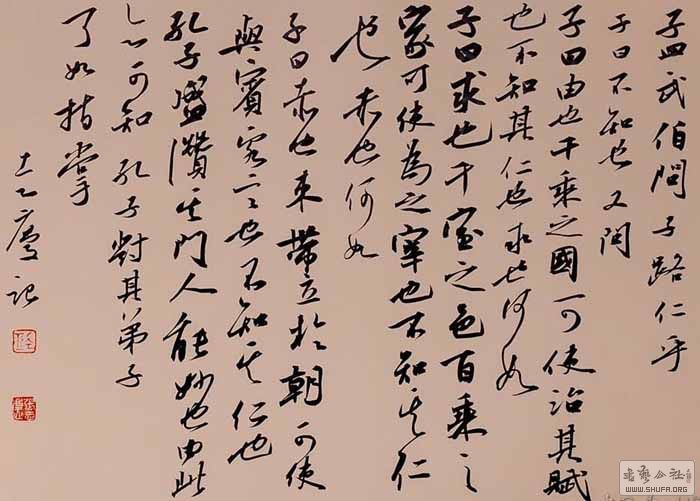 孟武伯問子路仁乎
子曰不知也又問
子曰由也千乘之國可使治其賦
也不知其仁也求也何如
子曰求也千室之邑百乘之
家可使為之宰也不知其仁
也赤也何如
子曰赤也束帶立於朝可使
與賓客言也不知其仁也
孔子盛讚其門人能妙也由此
亦可知孔子對其弟子
了如指掌
記
書藝公社
WWW.SHUFA.ORG